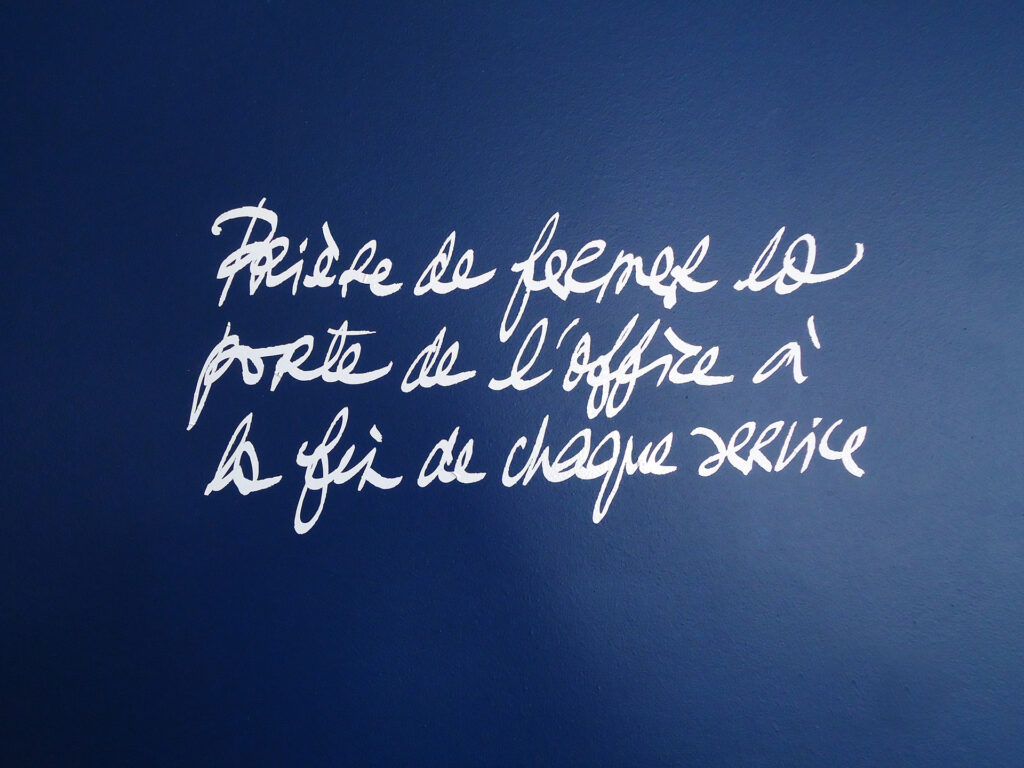 Prière de fermer la
porte de l'office à
la fin de chaque service